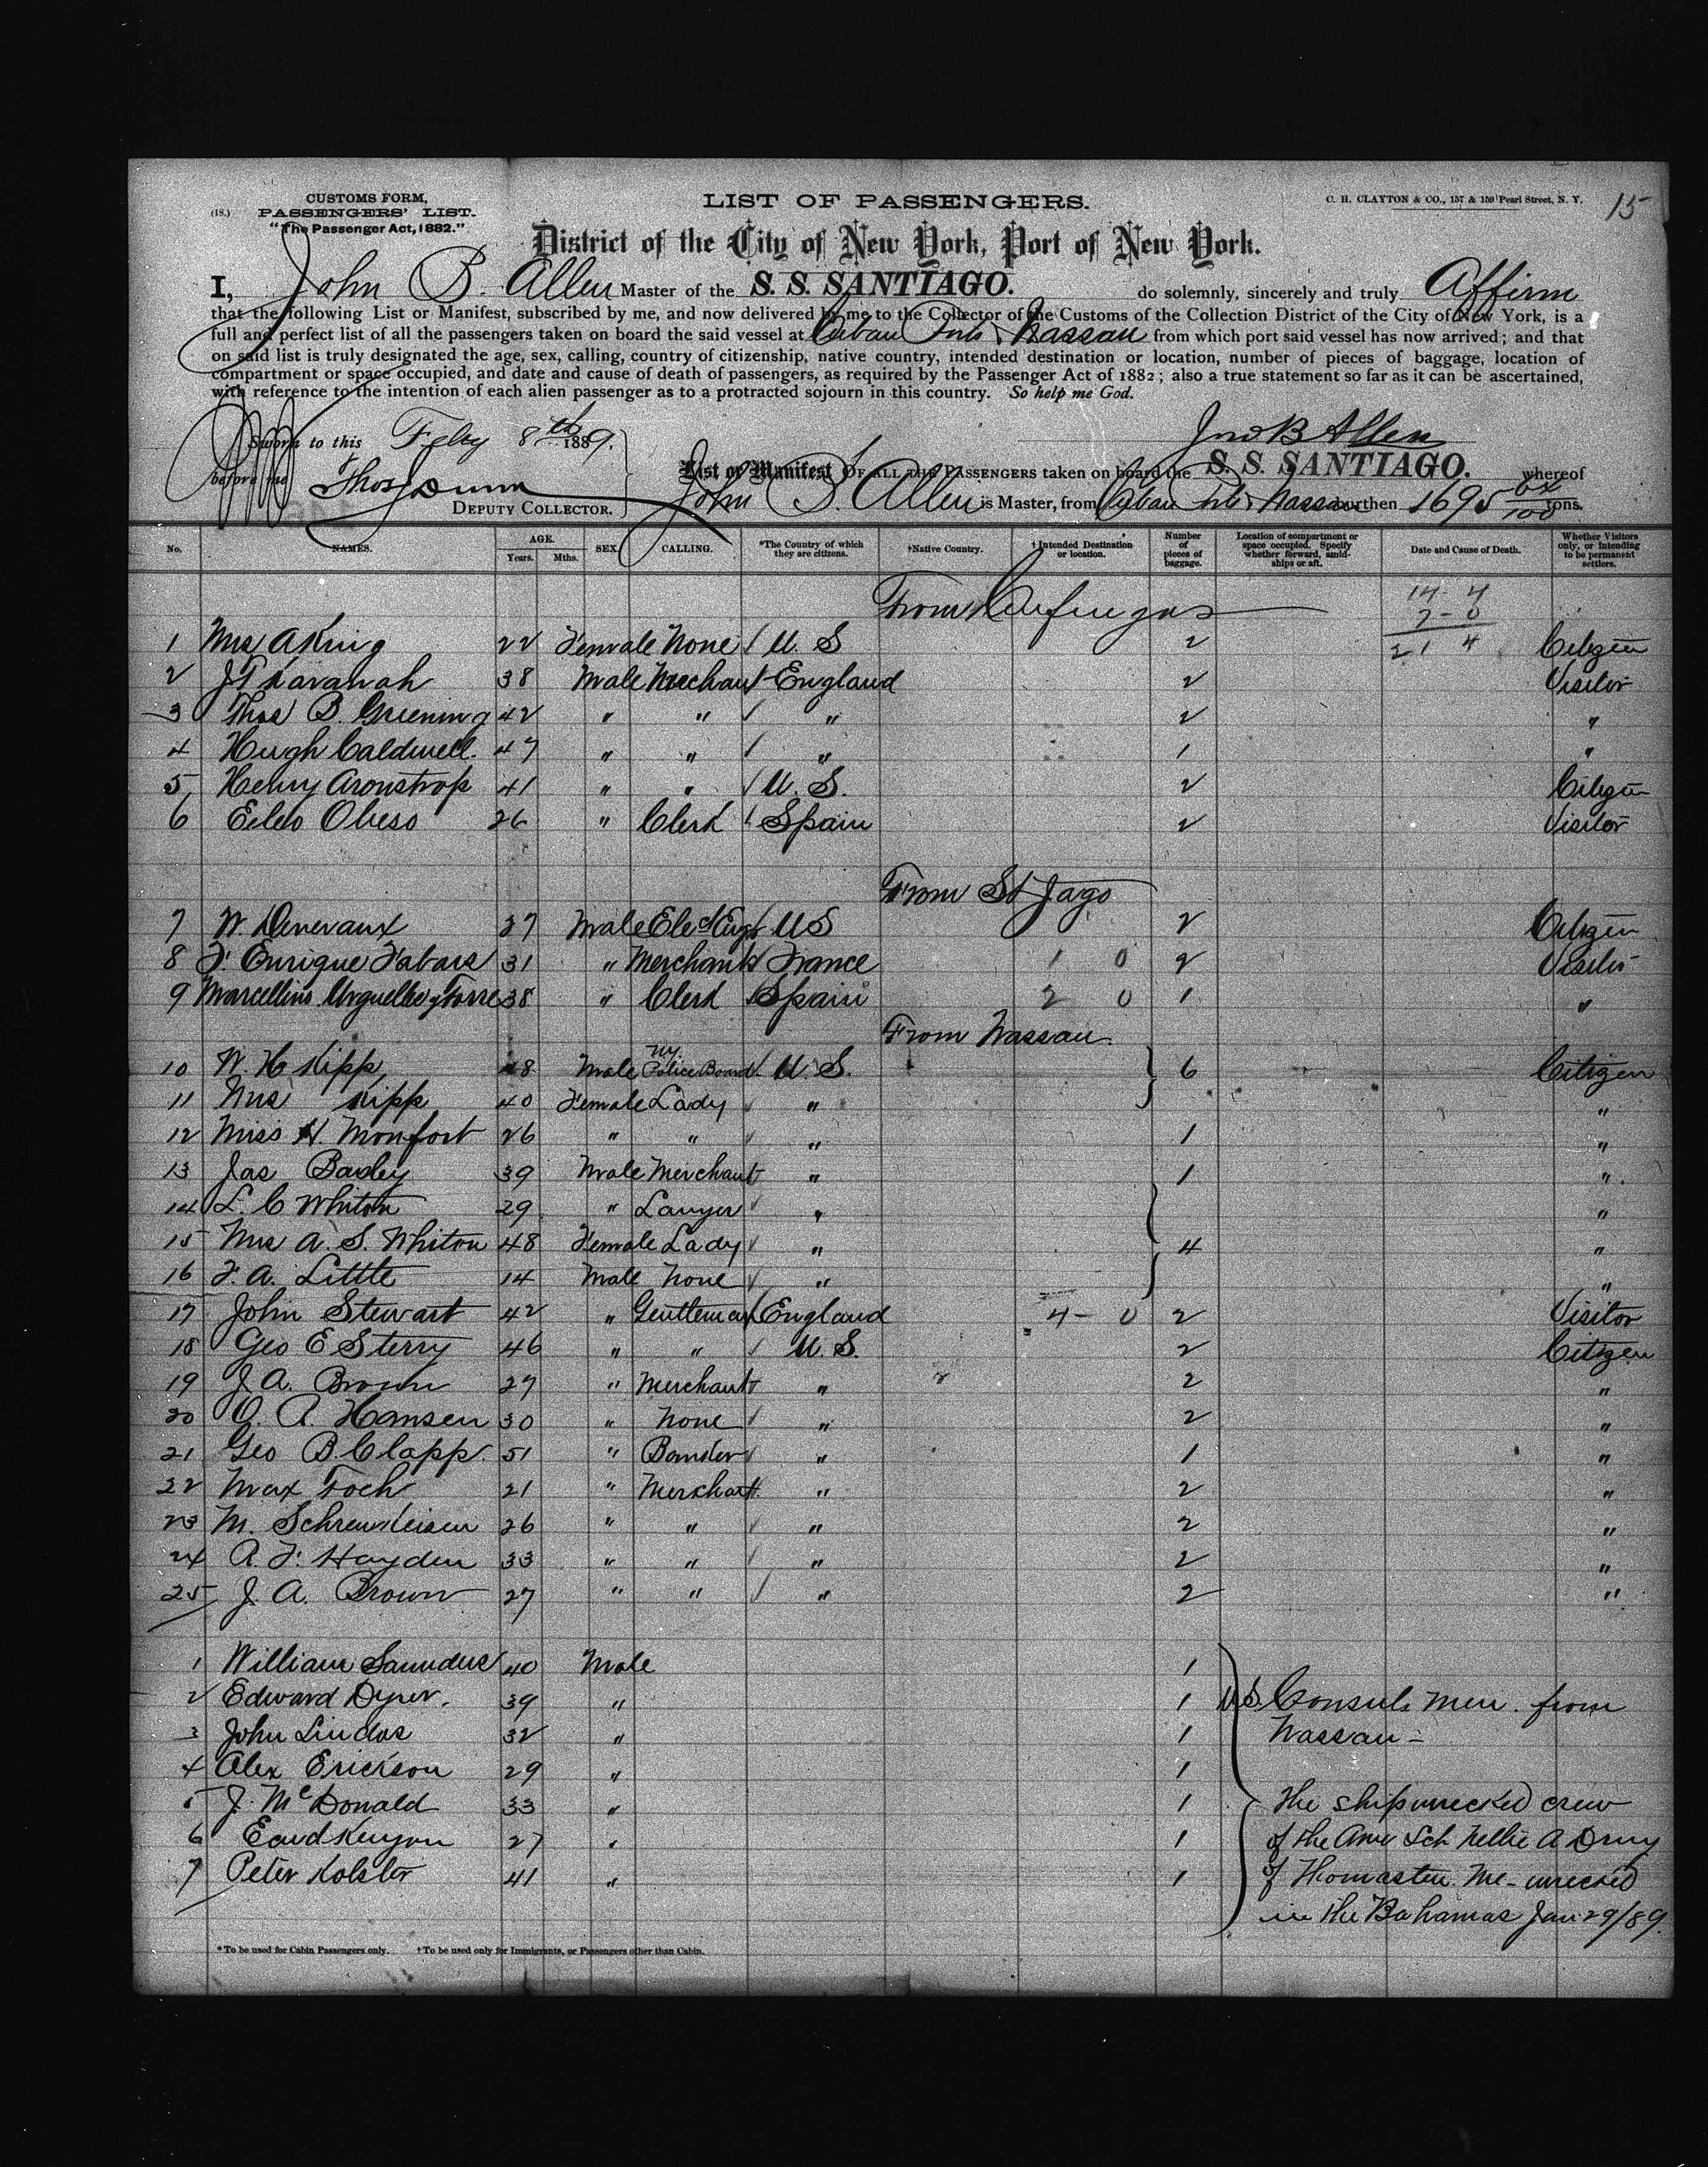 CUSTOMS FORM,
(18.) PASSENGERS' LIST.
"The Passenger Act, 1882."
LIST OF PASSENGERS.
C. H. CLAYTON & CO., 157 & 159 Pearl Street, N. Y.
15
District of the City of New York, Port of New York.
I, John B. Allen Master of the S. S. SANTIAGO. do solemnly, sincerely and truly Affirm
that the following List or Manifest, subscribed by me, and now delivered by me to the Collector of the Customs of the Collection District of the City of New York, is a
full and perfect list of all the passengers taken on board the said vessel at Cuban Ports & Nassau from which port said vessel has now arrived; and that
on said list is truly designated the age, sex, calling, country of citizenship, native country, intended destination or location, number of pieces of baggage, location of
compartment or space occupied, and date and cause of death of passengers, as required by the Passenger Act of 1882; also a true statement so far as it can be ascertained,
with reference to the intention of each alien passenger as to a protracted sojourn in this country. So help me God.
Sworn to this Feby 8th 1889.
Jno B Allen
before me Thos Dunn
DEPUTY COLLECTOR.
List or Manifest OF ALL THE PASSENGERS taken on board the S. S. SANTIAGO. whereof
John B. Allen is Master, from Cuban Ports & Nassau burthen 1695 64/100 tons.
No. NAMES. AGE. Years. Mths. SEX. CALLING. *The Country of which they are citizens. †Native Country. †Intended Destination or location. Number of pieces of baggage. Location of compartment or space occupied. Specify whether forward, amidships or aft. Date and Cause of Death. Whether Visitors only, or intending to be permanent settlers.
From Cienfuegos
14-4
7-0
21 4
1 Mrs A King 22 Female None U. S 2 Citizen
2 J T Kavanah 38 Male Merchant England 2 Visitor
3 Thos B. Greening 42 " " " 2 "
4 Hugh Caldwell. 47 " " " 1 "
5 Henry Aronstrop 41 " " U. S. 2 Citizen
6 Obeso 26 " Clerk Spain 2 Visitor
From St Jago
7 W. Denevaux 37 Male Elect Engr U S 2 Citizen
8 F. Enrique Fabars 31 " Merchant France 1 0 2 Visitor
9 Marcellino y Torre 38 " Clerk Spain 2 0 1 "
From Nassau.
10 W. H Kipp 48 Male NY. Police Board U. S. 6 Citizen
11 Mrs Kipp 40 Female Lady " "
12 Miss H. Monfort 26 " " " 1 "
13 Jas Baxley 39 Male Merchant " 1 "
14 L. C Whiton 29 " Lawyer " "
15 Mrs A. S. Whiton 48 Female Lady " 4 "
16 F. A. Little 14 Male None " "
17 John Stewart 42 " Gentleman England 4-0 2 Visitor
18 Geo E Sterry 46 " " U. S. 2 Citizen
19 J. A. Brown 27 " Merchant " 2 "
20 O. A. Hansen 30 " None " 2 "
21 Geo B. Clapp. 51 " Banker " 1 "
22 Max Toch 21 " Merchant " 2 "
23 M. Schrenkeisen 26 " " " 2 "
24 A. F. Hayden 33 " " " 2 "
25 J. A. Brown 27 " " " 2 "
1 William Saunders 40 Male 1
2 Edward Dyer. 39 " 1 U.S. Consuls men. from
3 John Lindas 32 " 1 Nassau -
4 Alex Erickson 29 " 1
5 J. McDonald 33 " 1 The shipwrecked crew
6 Kenyon 27 " 1 of the Ame Sch Nellie A Drury
7 Peter Kolster 41 " 1 of Thomaston Me - wrecked
in the Bahamas Jan 29/89.
*To be used for Cabin Passengers only. †To be used only for Immigrants, or Passengers other than Cabin.